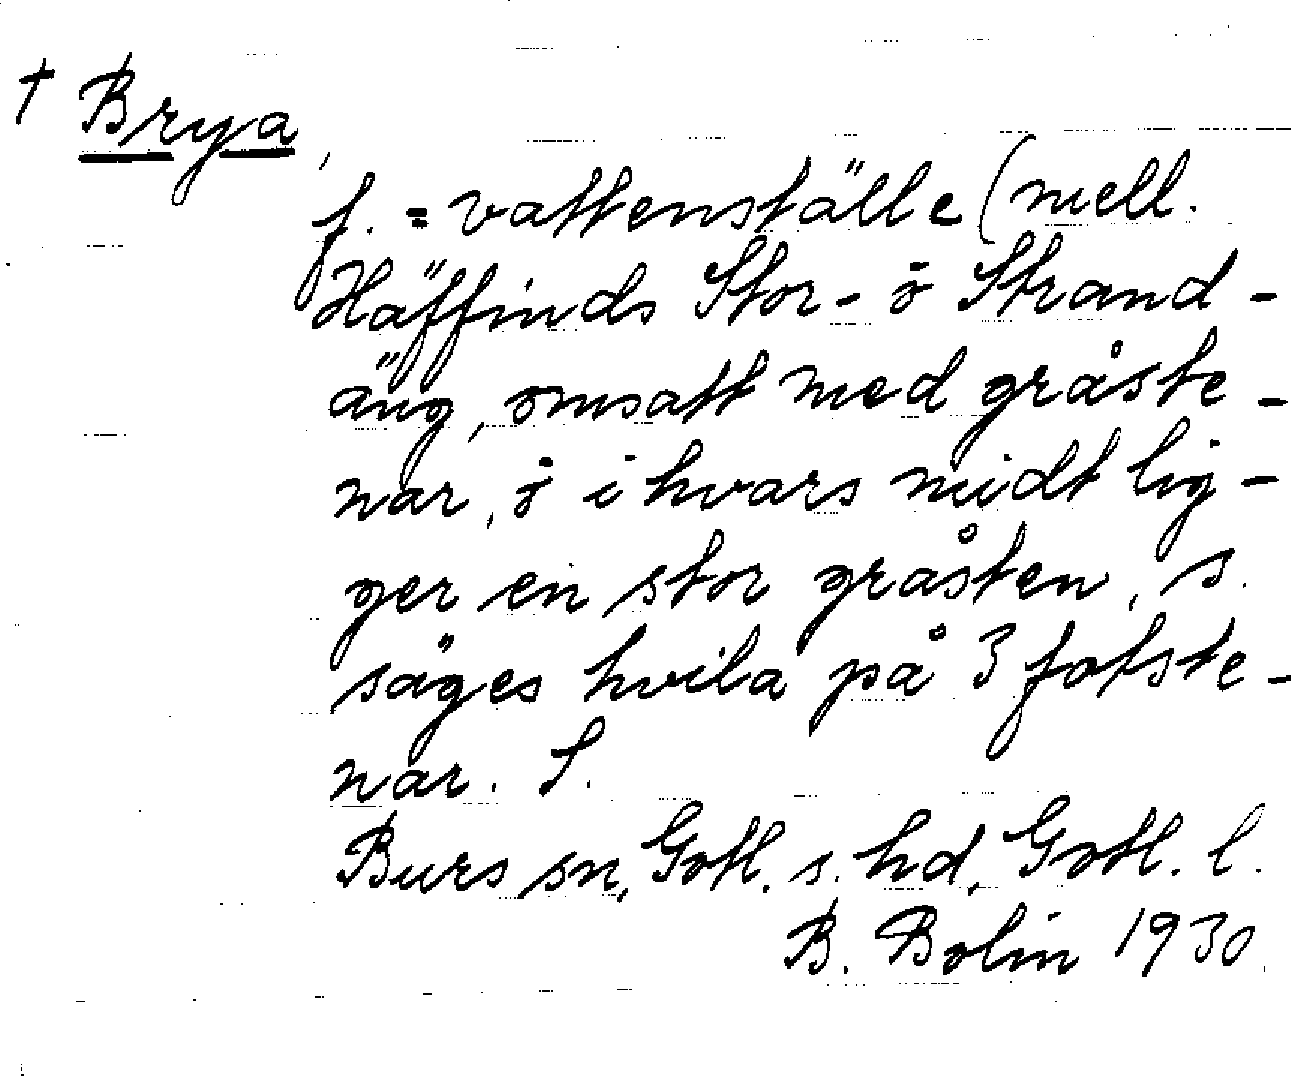 † Brya,
f. = vattenställe (mell.
Häffinds Stor- ō Strand-
äng, omsatt med gråste-
nar, ō i hvars midt lig-
ger en stor gråsten, s.
säges hvila på 3 fotste-
nar. S.
Burs sn, Gotl. s. hd, Gotl. l.
B. Bolin 1930